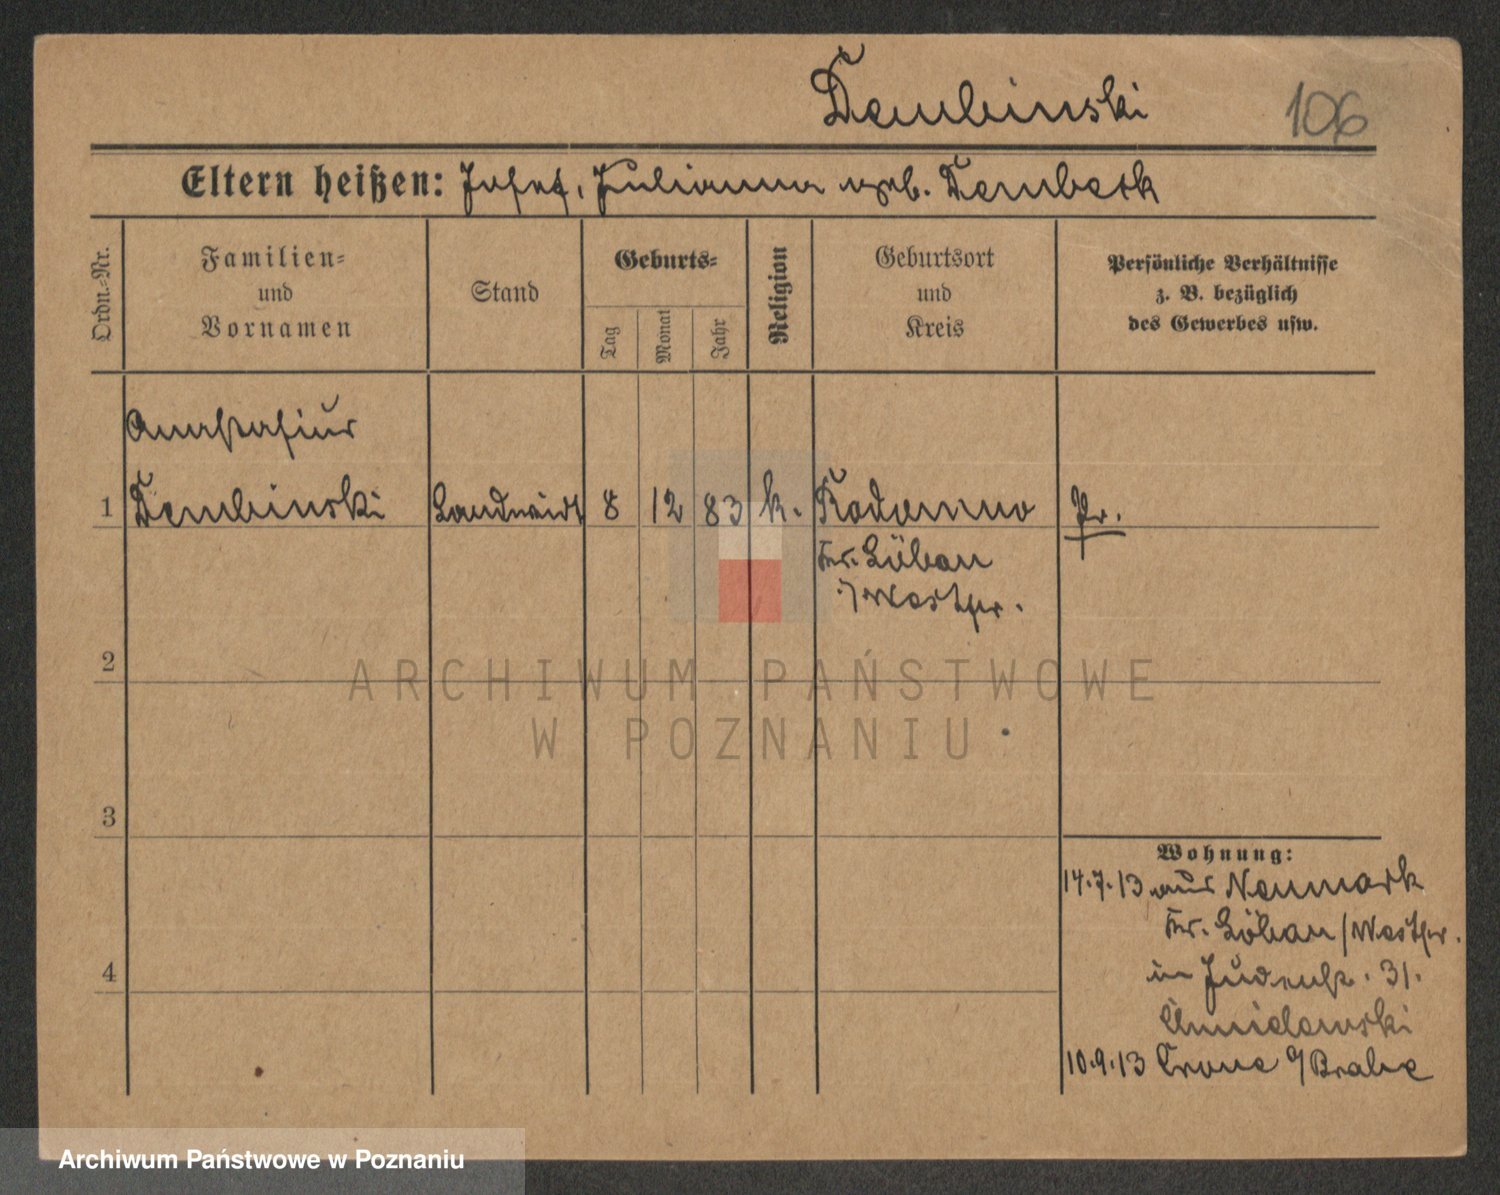 Dembinski 106
Eltern heißen: Josef, Julianna geb. Dembeck
Ordn.-Nr.
Familien-
und
Vornamen
Stand
Geburts-
Tag
Monat
Jahr
Religion
Geburtsort
und
Kreis
Persönliche Verhältnisse
z. B. bezüglich
des Gewerbes usw.
Anastasius
1 Dembinski Landwirt 8 12 83 k. Radomno Pr.
Kr. Löbau
i/Westpr.
2
3
4
Wohnung:
14.7.13 aus Neumark
Kr. Löbau/Westpr.
in Judenstr. 31.
10.9.13 Crone a/Brahe
ARCHIWUM PAŃSTWOWE
W POZNANIU
Archiwum Państwowe w Poznaniu